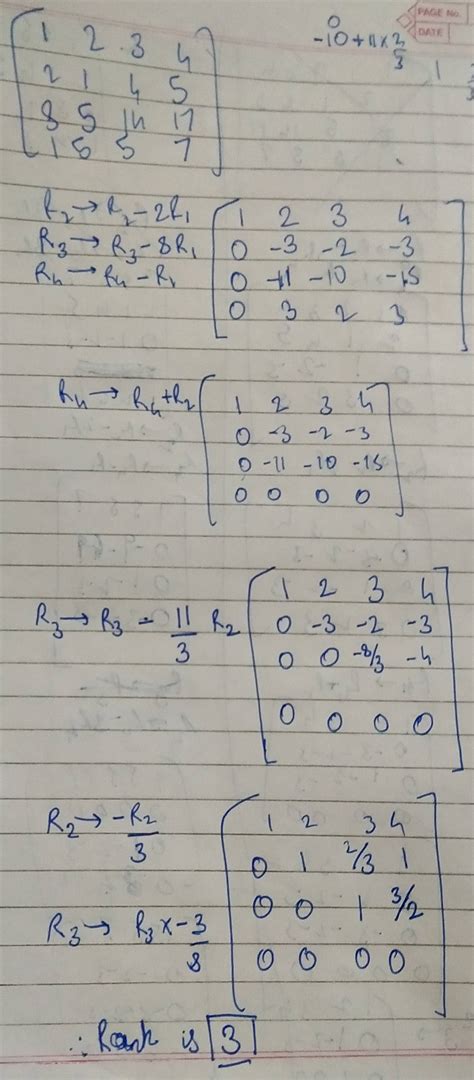 PAGE NO.
DATE
0
-10 + 11 × 2/3
1
1 2 3 4
2 1 4 5
8 5 14 17
1 5 5 7
R2 → R2 - 2R1
R3 → R3 - 8R1
R4 → R4 - R1
1 2 3 4
0 -3 -2 -3
0 -11 -10 -15
0 3 2 3
R4 → R4 + R2
1 2 3 4
0 -3 -2 -3
0 -11 -10 -15
0 0 0 0
R3 → R3 - 11/3 R2
1 2 3 4
0 -3 -2 -3
0 0 -8/3 -4
0 0 0 0
R2 → -R2/3
R3 → R3 × -3/8
1 2 3 4
0 1 2/3 1
0 0 1 3/2
0 0 0 0
∴ Rank is 3